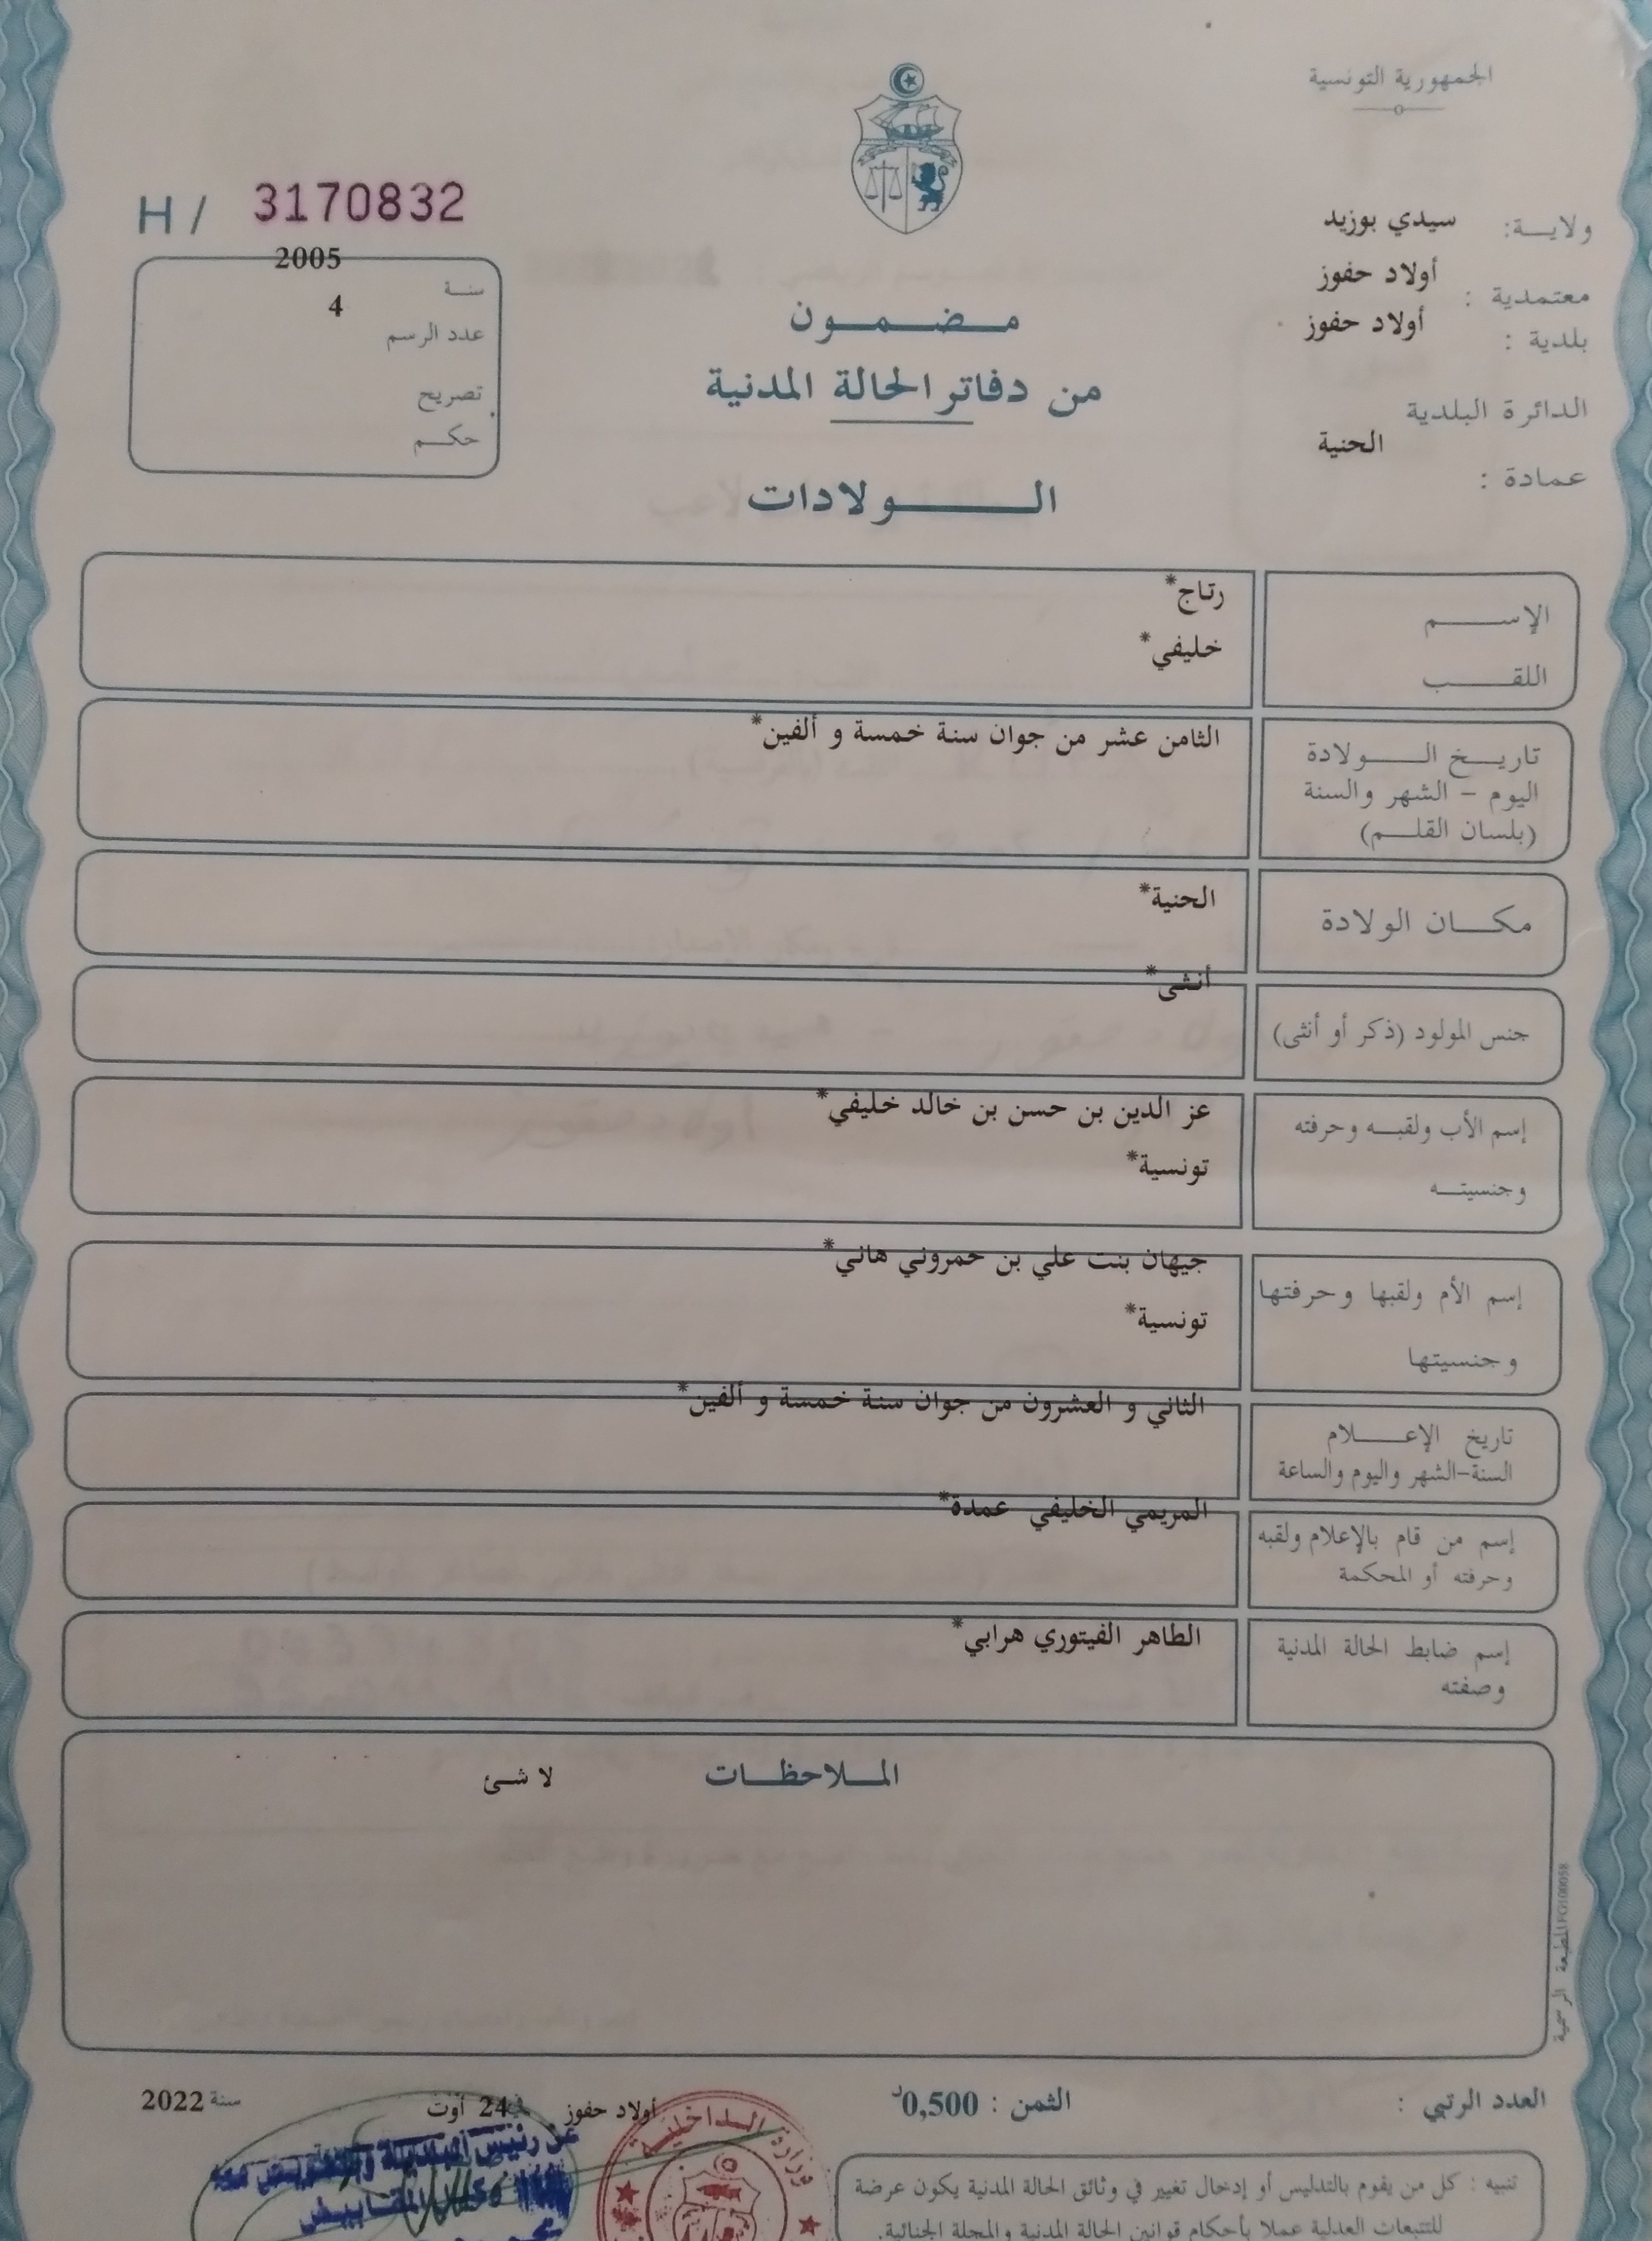 الجمهورية التونسية
ولايـــة: سيدي بوزيد
معتمدية : أولاد حفوز
بلدية : أولاد حفوز
الدائرة البلدية
عمادة : الحنية
H / 3170832
سنـــة 2005
عدد الرسم 4
تصريح
حكـــم
مـــضـــمـــون
من دفاتر الحالة المدنية
الـــــولادات
الإســـــم رتاج*
اللقـــــب خليفي*
تاريـــخ الـــــولادة الثامن عشر من جوان سنة خمسة و ألفين*
اليوم – الشهر والسنة
(بلسان القلـــم)
مكـــان الولادة الحنية*
جنس المولود (ذكر أو أنثى) أنثى*
إسم الأب ولقبـــه وحرفته عز الدين بن حسن بن خالد خليفي*
وجنسيتـــه تونسية*
إسم الأم ولقبها وحرفتها جيهان بنت علي بن حمروني هاني*
وجنسيتها تونسية*
تاريخ الإعـــــلام الثاني و العشرون من جوان سنة خمسة و ألفين*
السنة-الشهر واليوم والساعة
إسم من قام بالإعلام ولقبه المريمي الخليفي عمدة*
وحرفته أو المحكمة
إسم ضابط الحالة المدنية الطاهر الفيتوري هرابي*
وصفته
المـــلاحظـــات لا شئ
المطبعة الرسمية FO100058
العدد الرتبي :
الثمن : 0,500د
أولاد حفوز في 24 أوت سنة 2022
وزارة الـداخليـة
تنبيه : كل من يقوم بالتدليس أو إدخال تغيير في وثائق الحالة المدنية يكون عرضة
للتتبعات العدلية عملا بأحكام قوانين الحالة المدنية والمجلة الجنائية.